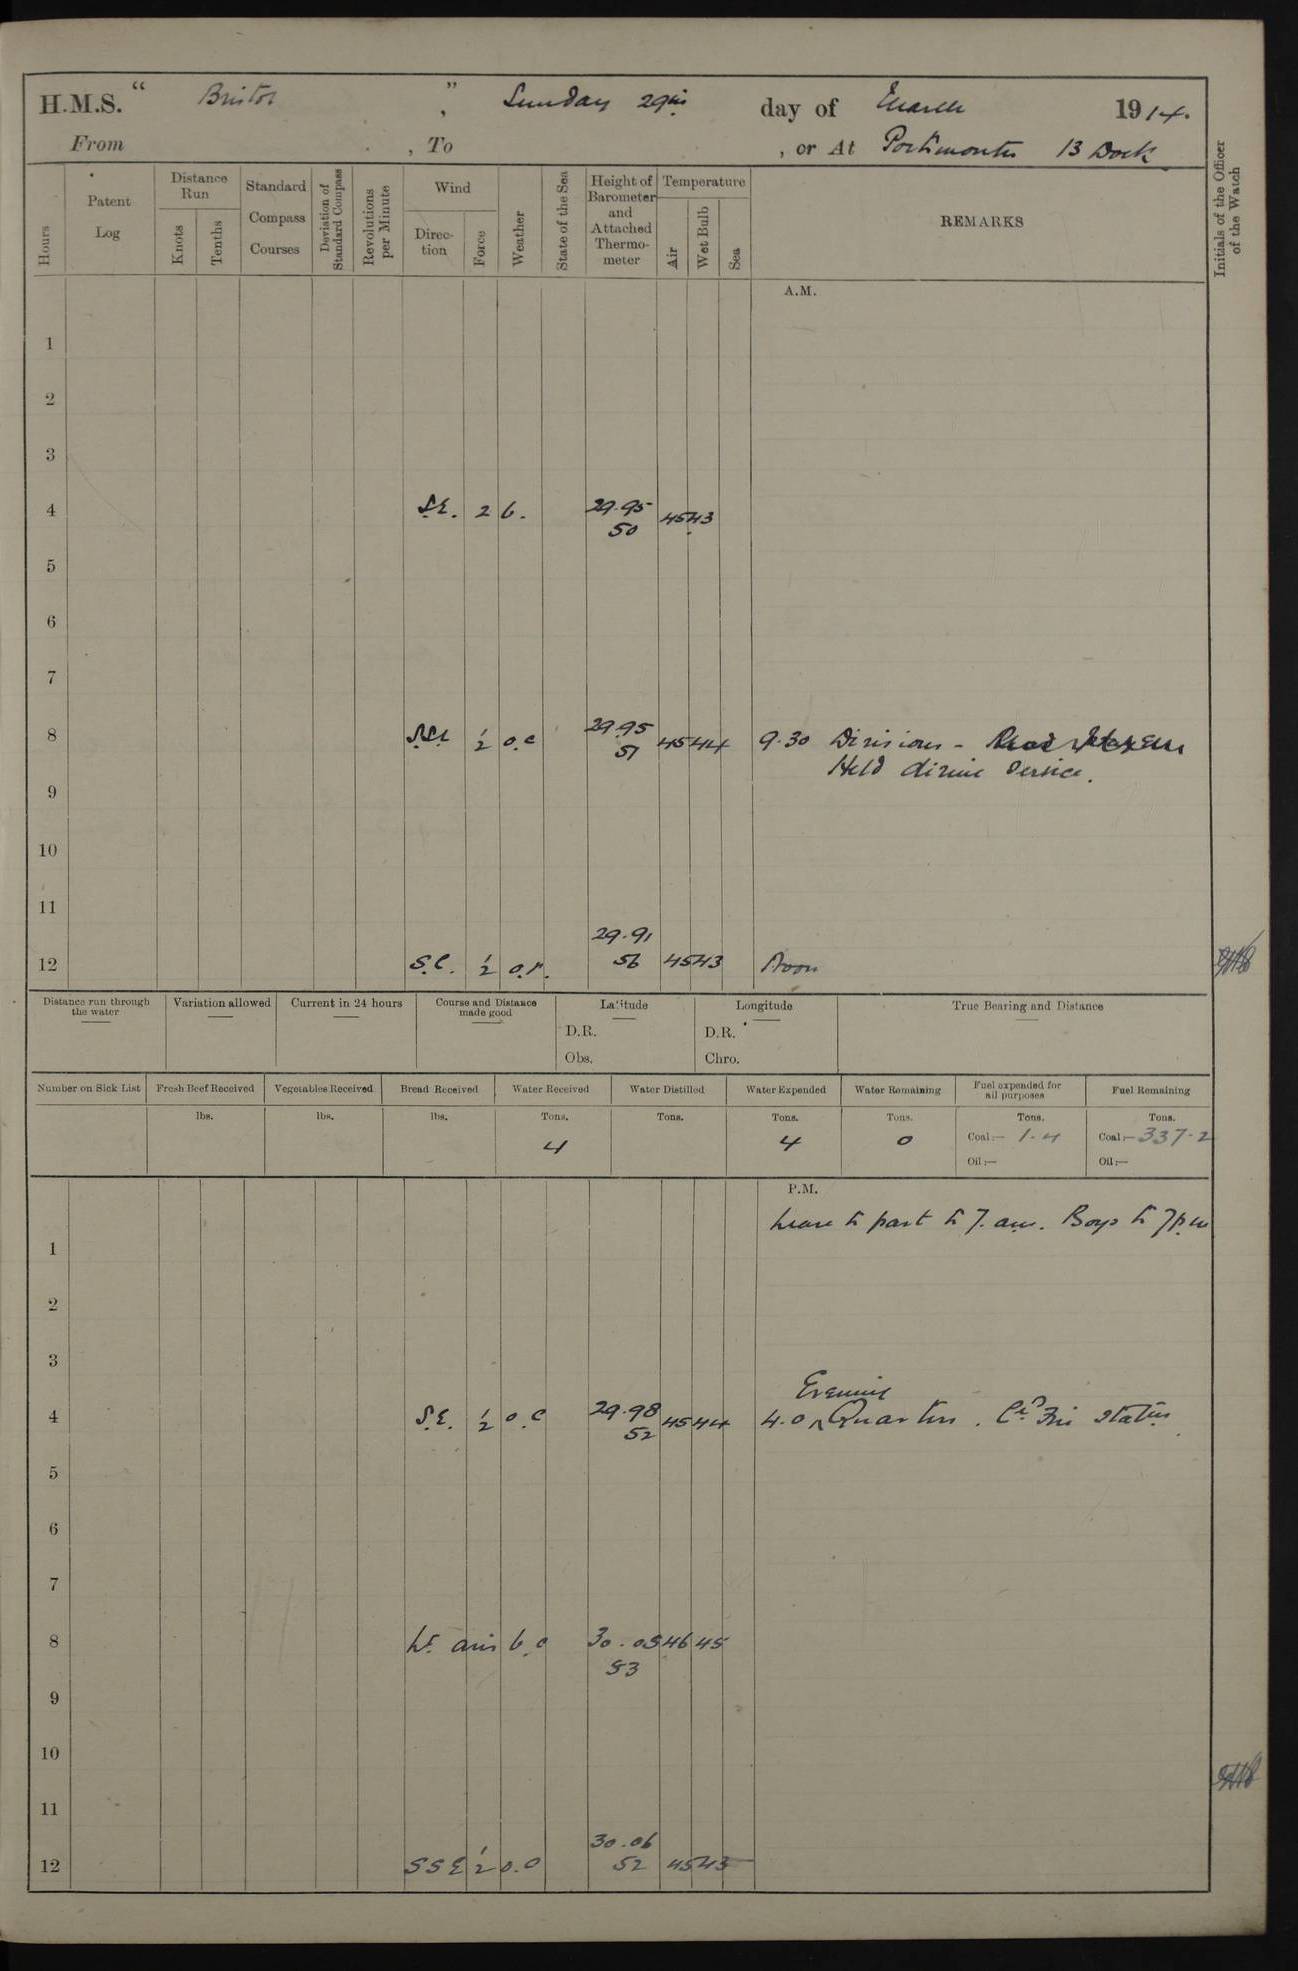 H.M.S. “ Bristol ”, Sunday 29th day of March 1914.
From , To , or At Portsmouth 13 Dock
Hours
Patent Log
Distance Run
Knots
Tenths
Standard Compass Courses
Deviation of Standard Compass
Revolutions per Minute
Wind
Direction
Force
Weather
State of the Sea
Height of Barometer and Attached Thermometer
Temperature
Air
Wet Bulb
Sea
REMARKS
Initials of the Officer of the Watch
A.M.
1
2
3
4 S.E. 2 b. 29.95 50 45 43
5
6
7
8 ½ o.c 29.95 51 45 44 9.30 Divisions -
Held divine service.
9
10
11
12 S.E. ½ o.r. 29.91 56 45 43 Noon
Distance run through the water
Variation allowed
Current in 24 hours
Course and Distance made good
Latitude
D.R.
Obs.
Longitude
D.R.
Chro.
True Bearing and Distance
Number on Sick List
Fresh Beef Received
Vegetables Received
Bread Received
Water Received
Water Distilled
Water Expended
Water Remaining
Fuel expended for all purposes
Fuel Remaining
lbs. lbs. lbs. Tons. Tons. Tons. Tons. Tons. Tons.
4 4 0 Coal:— 1.4 Coal:— 337.2
Oil:— Oil:—
P.M.
Leave to part to 7. am. Boys to 7 pm
1
2
3
4 S.E. ½ o.c 29.98 52 45 44 4.0 Evening Quarters. Fire stations
5
6
7
8 Lt. airs b.c 30.03 53 46 45
9
10
11
12 SSE ½ o.c 30.06 52 45 43